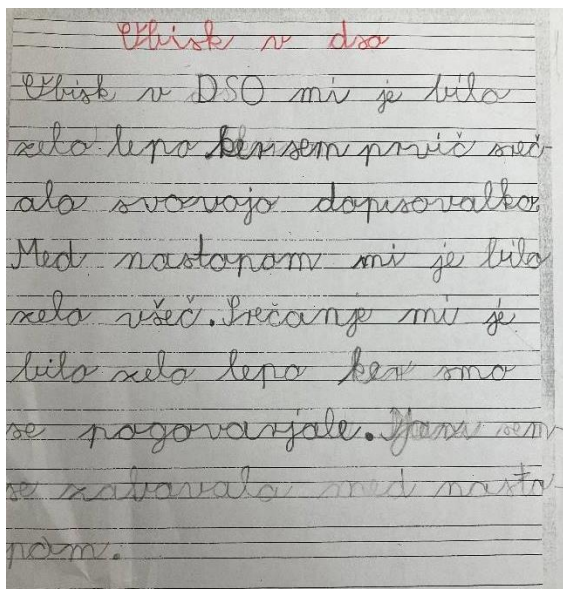 Obisk v dso
Obisk v DSO mi je bilo
zelo lepo ker sem prvič sreč
ala svovojo dopisovalko.
Med nastopom mi je bilo
zelo všeč. Srečanje mi je
bilo zelo lepo ker smo
se pogovarjale. sem
se zabavala med nasto
pom.